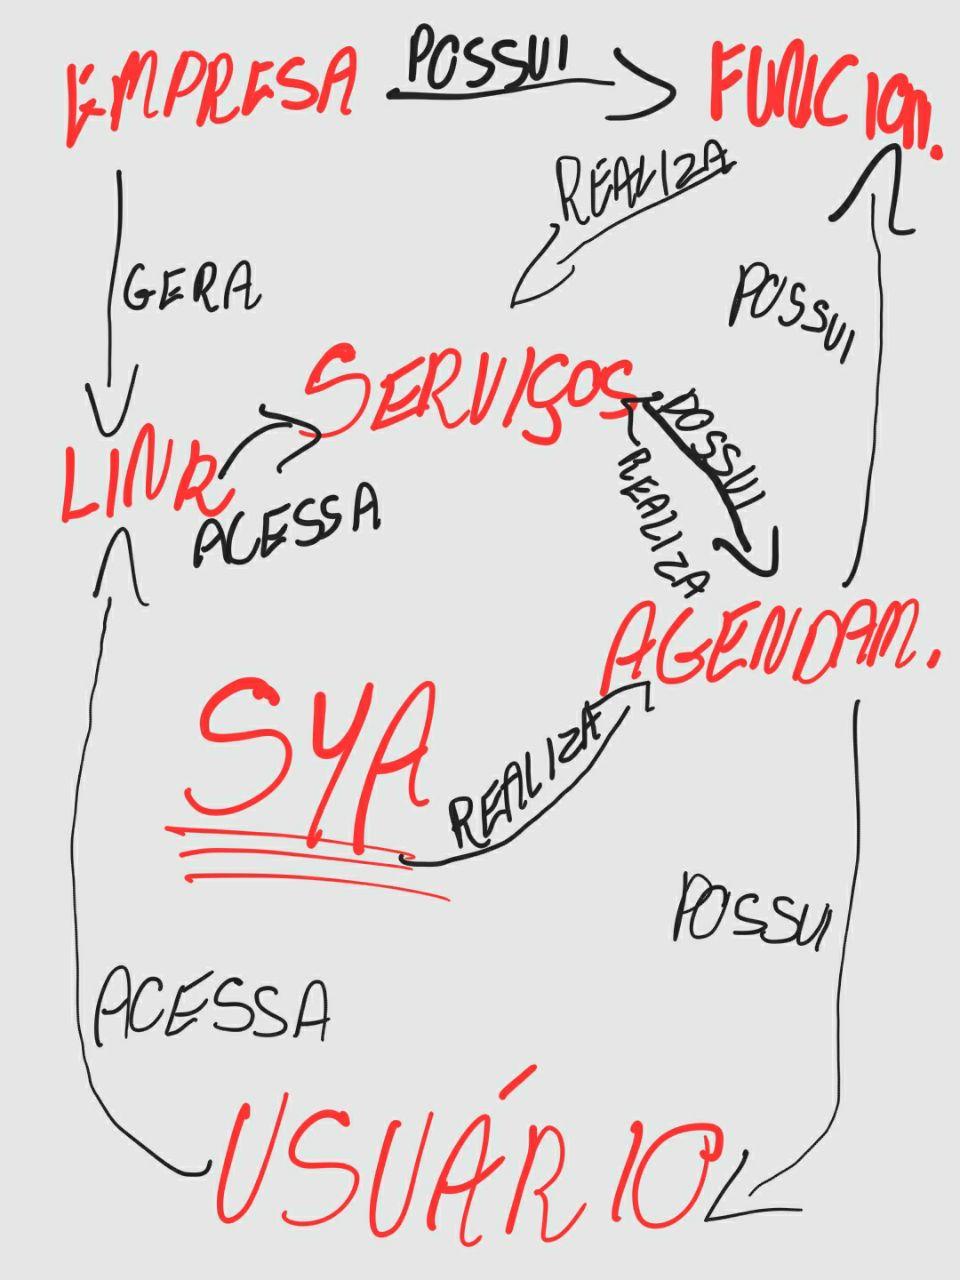 EMPRESA
POSSUI
FUNCION.
REALIZA
GERA
POSSUI
SERVIÇOS
POSSUI
LINK
ACESSA
REALIZA
AGENDAM.
SYA
REALIZA
POSSUI
ACESSA
USUÁRIO